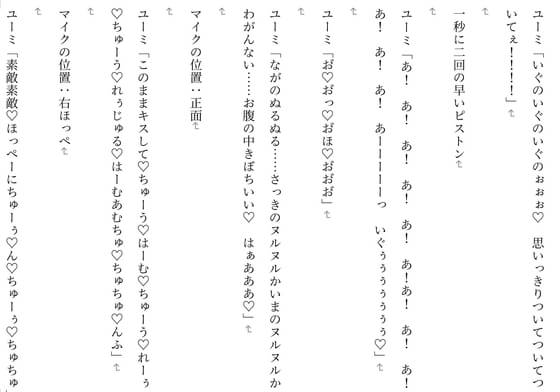 ユーミ「いぐのいぐのいぐのぉぉぉ♡　思いっきりついてついてつ
いてぇ！！！！」↵
↵
一秒に二回の早いピストン↵
↵
ユーミ「あ！　あ！　あ！　あ！　あ！　あ！　あ！あ！　あ！　あ！
あ！　あ！　あ！　あーーーーーっ　いぐぅぅぅぅぅぅぅ♡」↵
↵
ユーミ「お♡おっ♡おほ♡おおお」↵
↵
ユーミ「ながのぬるぬる……さっきのヌルヌルかいまのヌルヌルか
わがんない……お腹の中きぼちいい♡　はぁあああ♡」↵
↵
マイクの位置：正面↵
↵
ユーミ「このままキスして♡ちゅーう♡はーむ♡ちゅーう♡れーぅ
♡ちゅーう♡れぅじゅる♡はーむあむちゅ♡ちゅちゅ♡んふ」↵
↵
マイクの位置：右ほっぺ↵
↵
ユーミ「素敵素敵♡ほっぺーにちゅーぅ♡ん♡ちゅーぅ♡ちゅちゅ